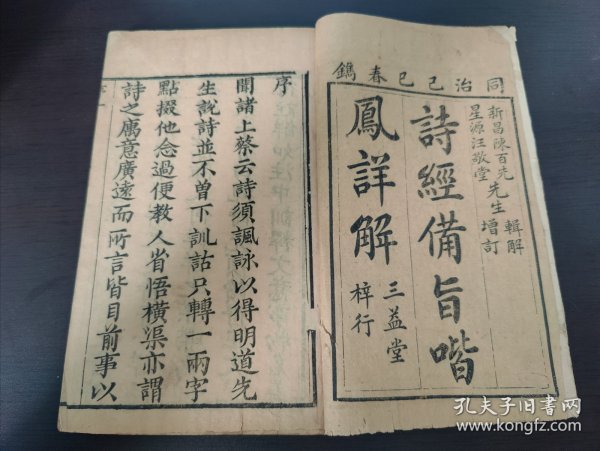 同治己巳春鐫
新昌陳百先
星源汪敬堂
先生
輯解
增訂
詩經備旨喈
鳳詳解
三益堂
梓行
序
聞諸上蔡云詩須諷詠以得明道先
生說詩並不曾下訓詁只轉一兩字
點掇他念過便教人省悟橫渠亦謂
詩之屬意廣遠而所言皆目前事以
孔夫子旧书网
www.kongfz.com